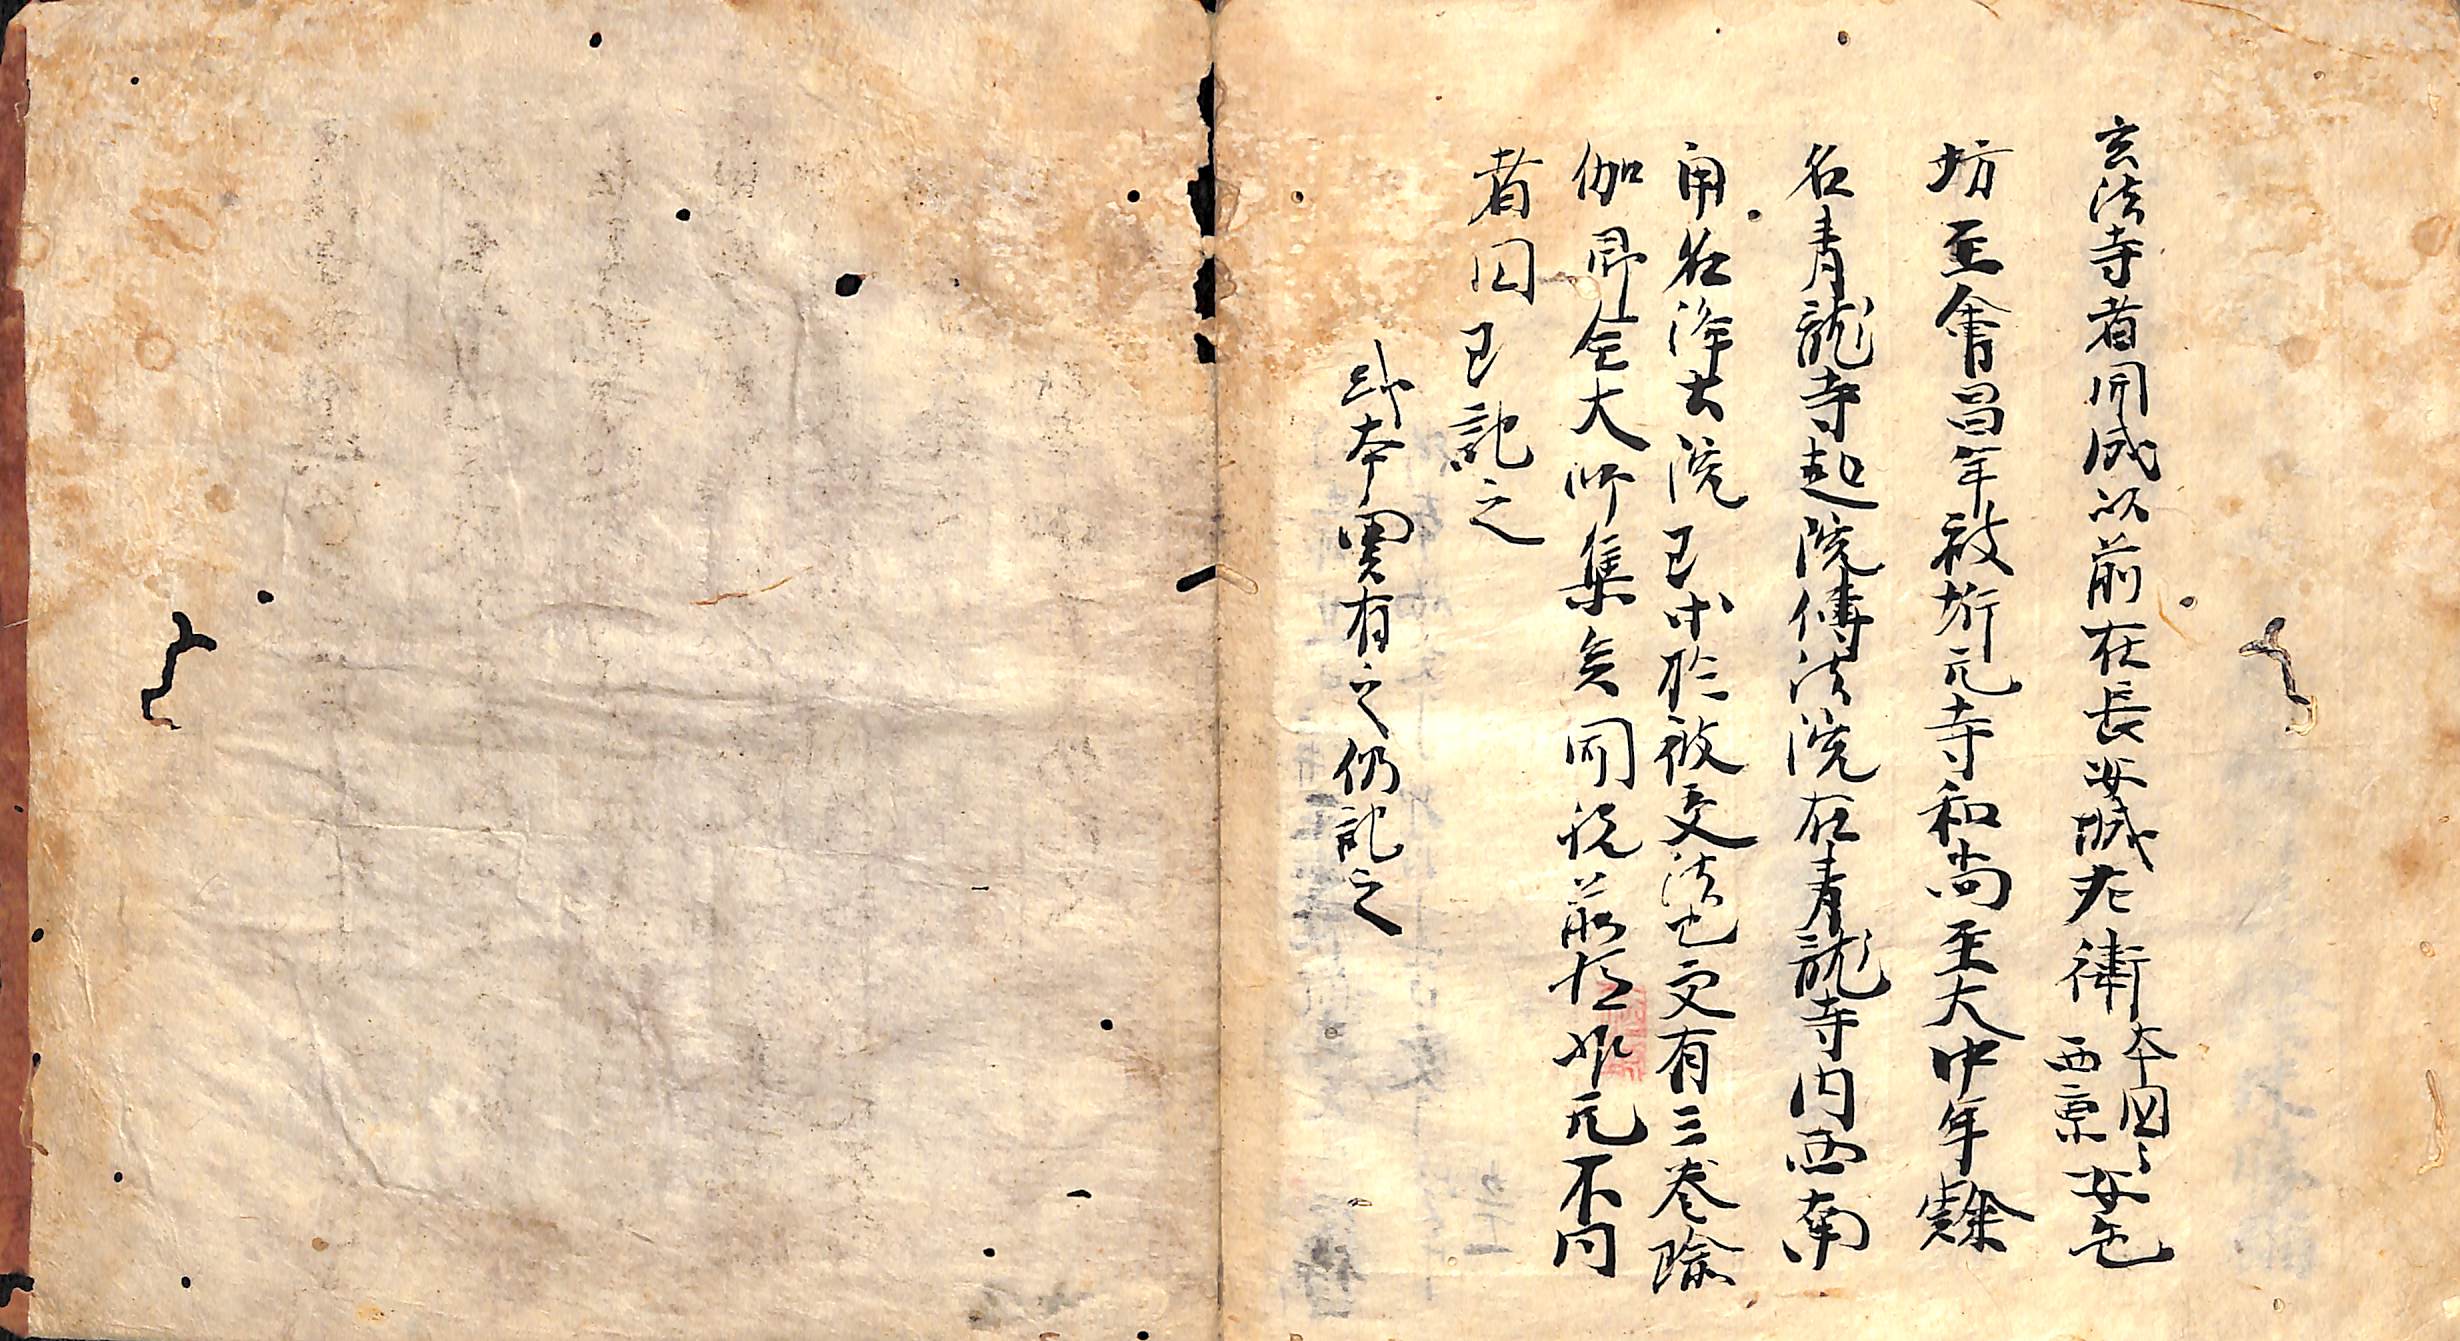 玄法寺者開成以前在長安城左街本国〻西京女邑
坊至會昌年被折元寺和尚至大中年隷
名青龍寺起院傳法院在青龍寺内西南
角名淨土院已求於彼受法也文有三巻瑜
伽即全大師集矣同就前 元不同
者因已記之
御本裏有之仍記之